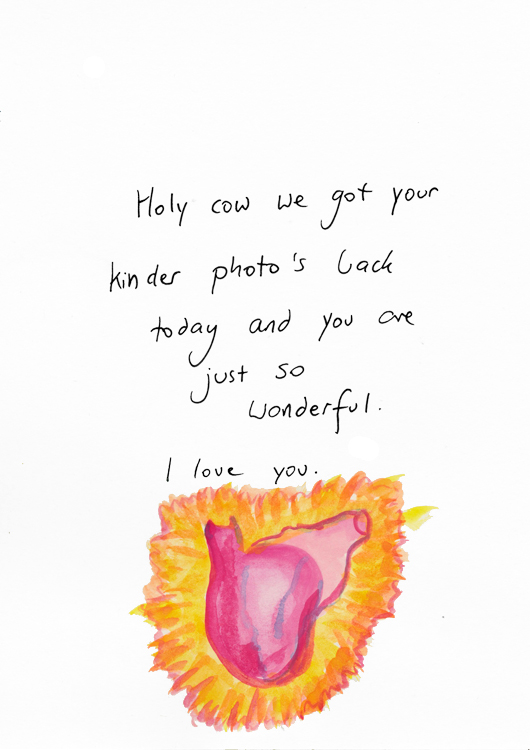 Holy cow we got your
kinder photo's back
today and you are
just so
wonderful.
I love you.